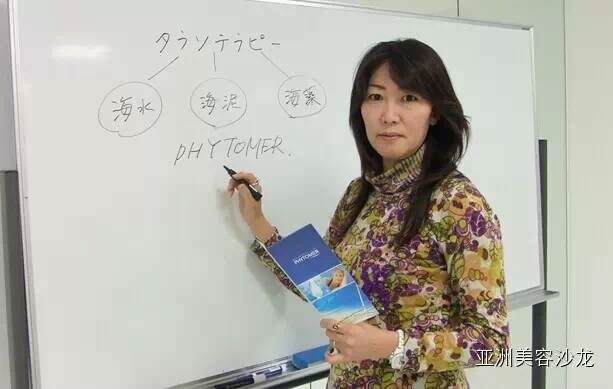 タラソテラピー
海水 海泥 海藻
PHYTOMER.
PHYTOMER
亚洲美容沙龙